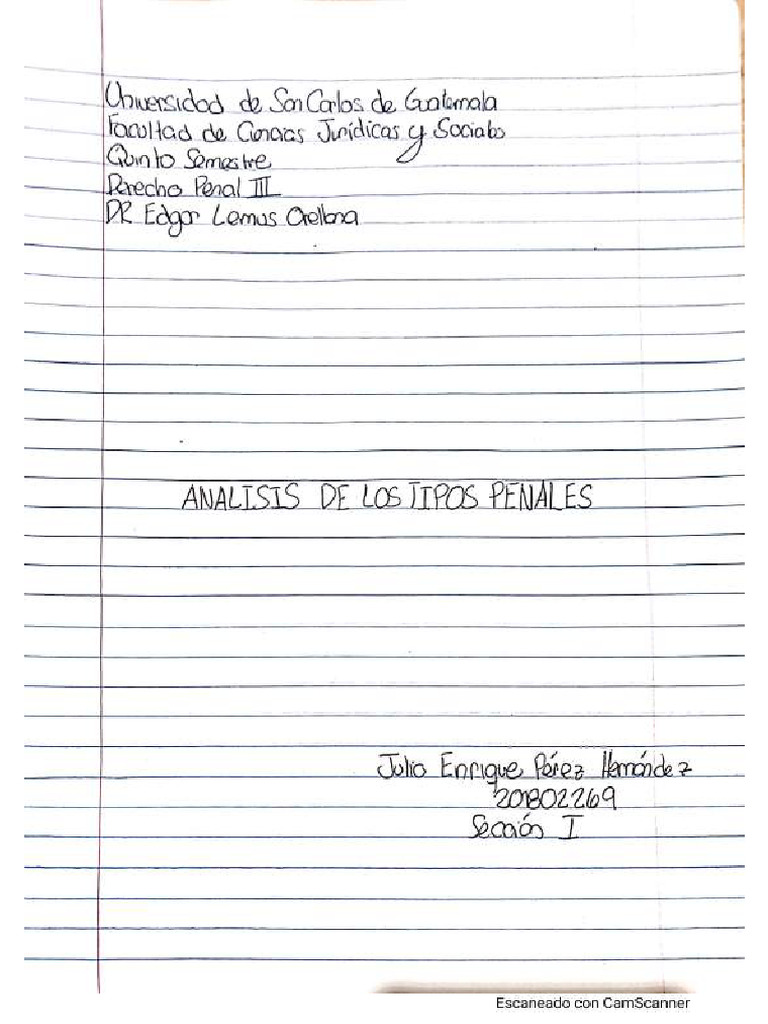 Universidad de San Carlos de Guatemala
Facultad de Ciencias Jurídicas y Sociales
Quinto Semestre
Derecho Penal III
DR Edgar Lemus Orellana
ANALISIS DE LOS TIPOS PENALES
Julio Enrique Pérez Hernández
201802269
Sección I
Escaneado con CamScanner